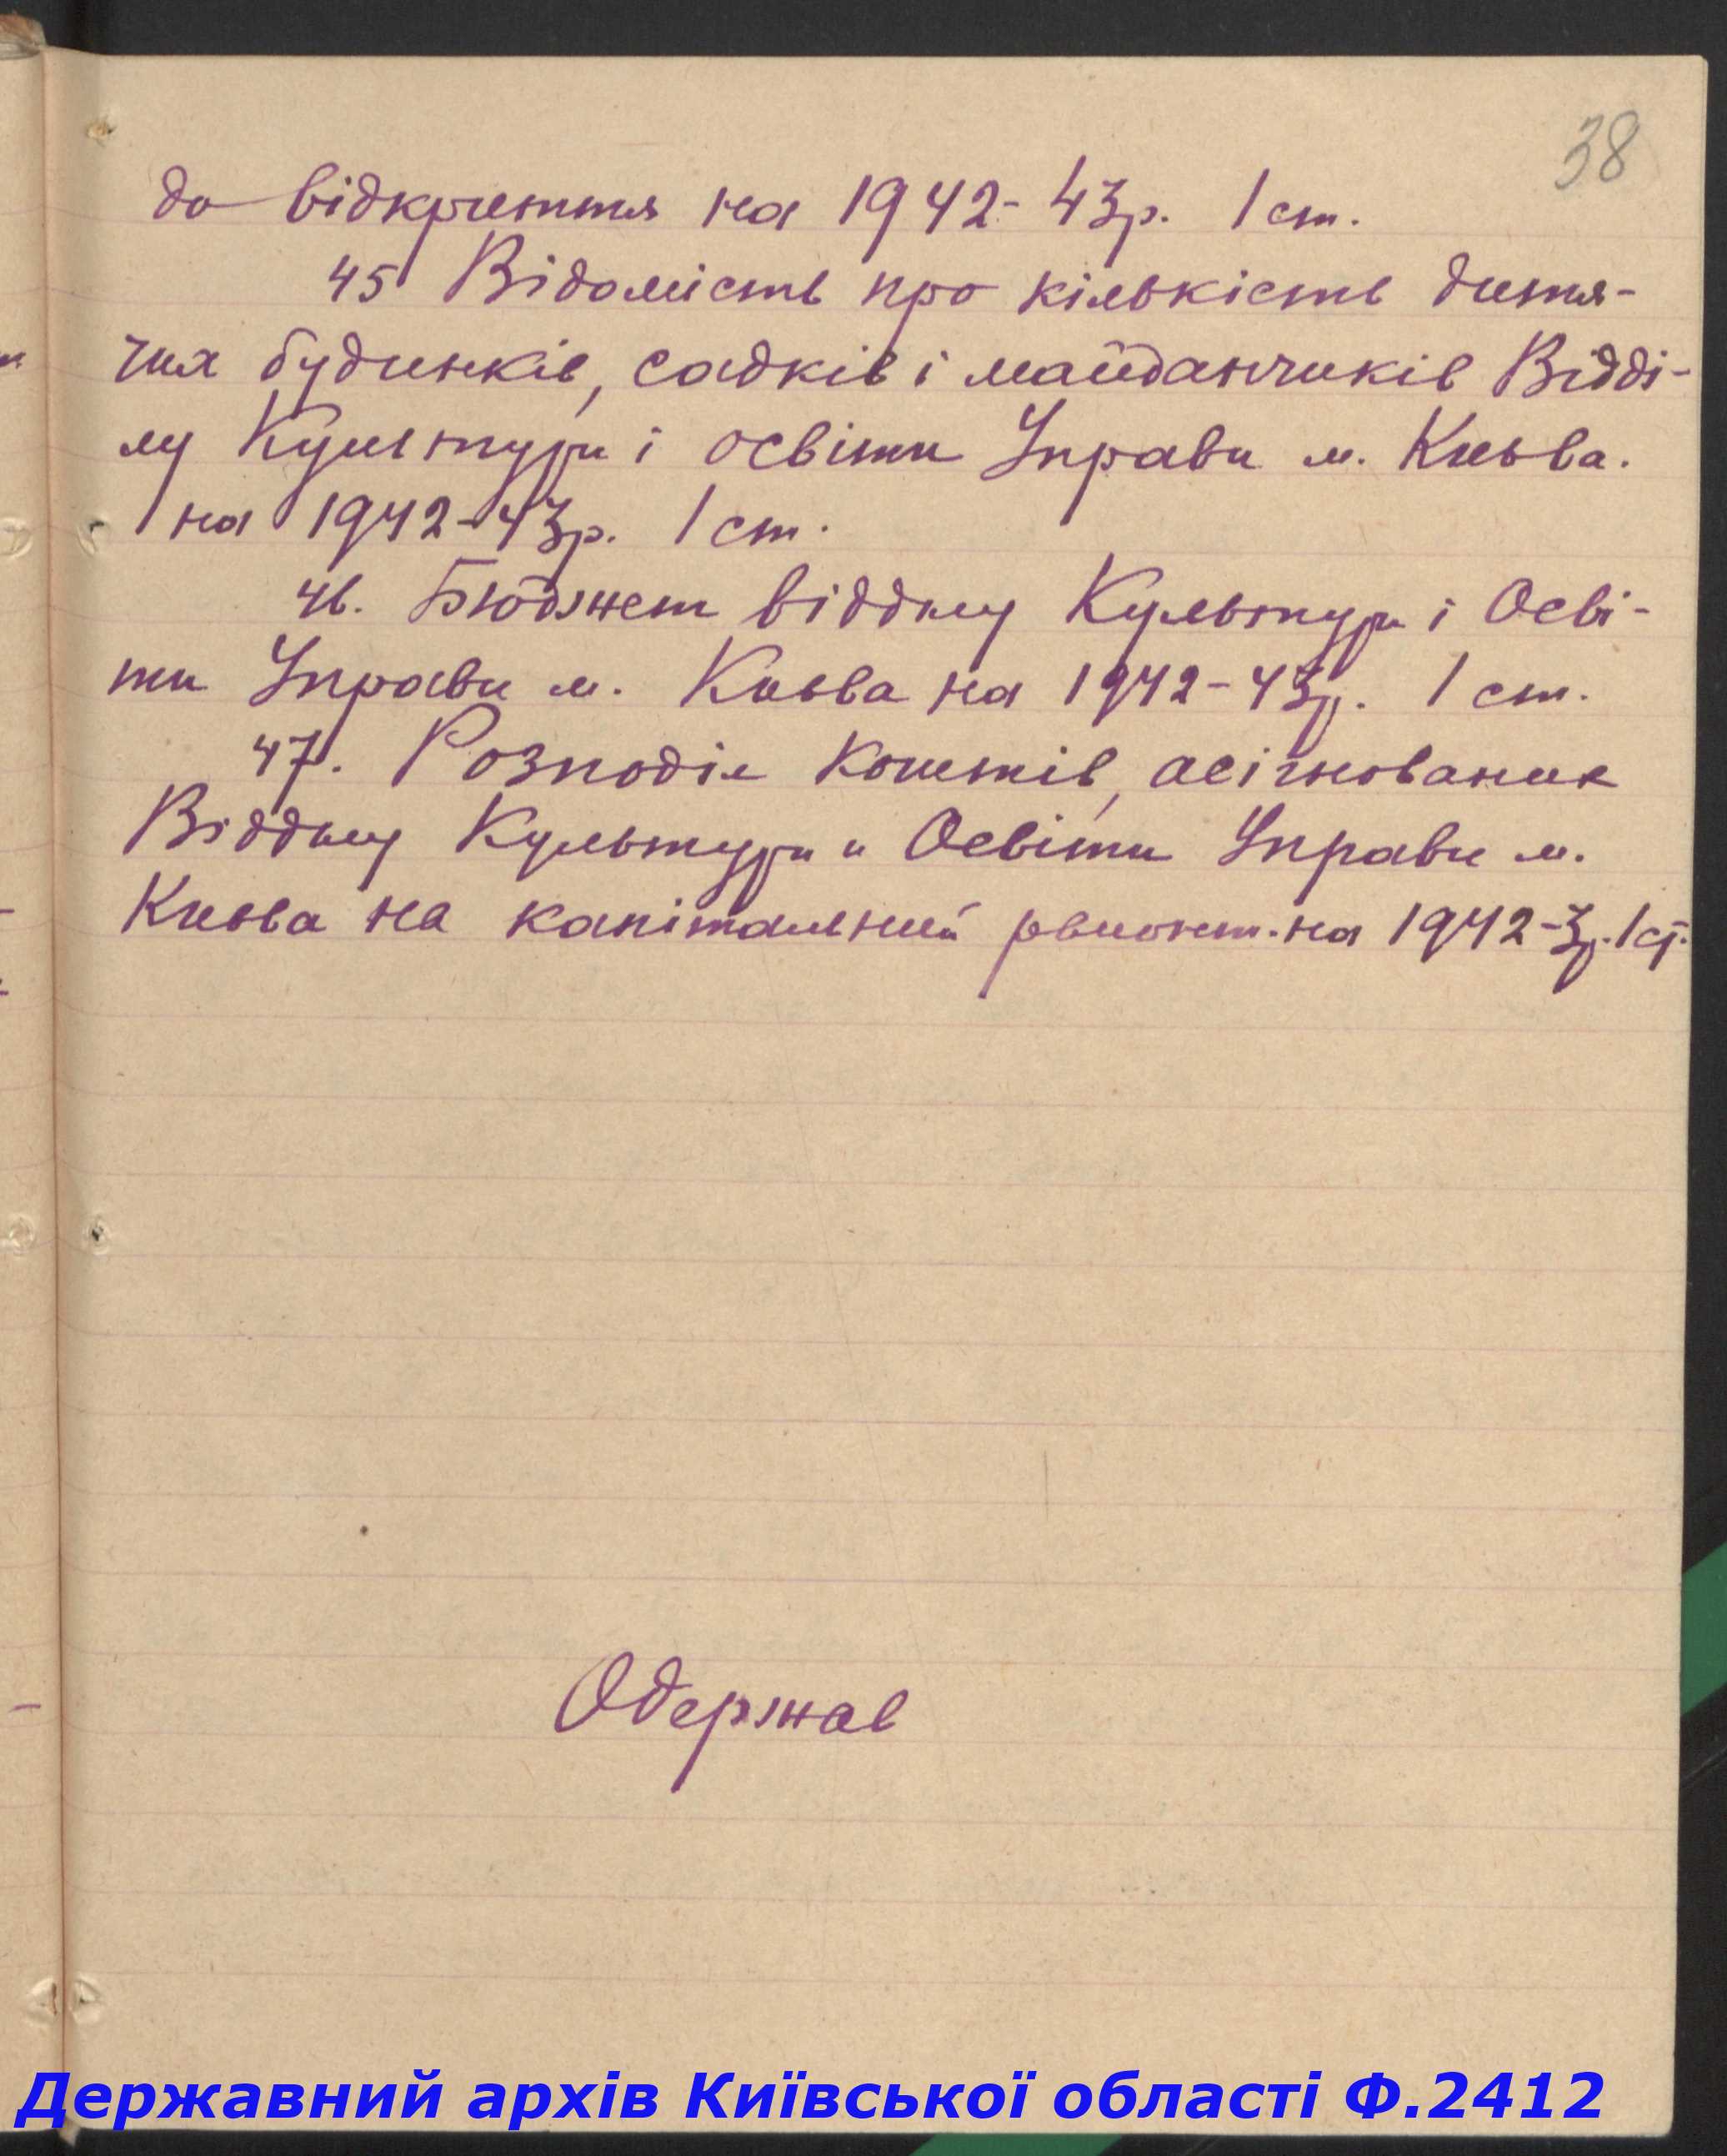 38
до відкриття на 1942-43р. 1 ст.
45 Відомість про кількість дитя-
чих будинків, садків і майданчиків Відді-
лу Культури і освіти Управи м. Києва.
на 1942-43р. 1 ст.
46. Бюджет відділу Культури і Осві-
ти Управи м. Києва на 1942-43р. 1 ст.
47. Розподіл коштів, асігнованих
Відділу Культури и Освіти Управи м.
Києва на капітальний ремонт. на 1942-3р. 1 ст.
Одержав
Державний архів Київської області Ф.2412